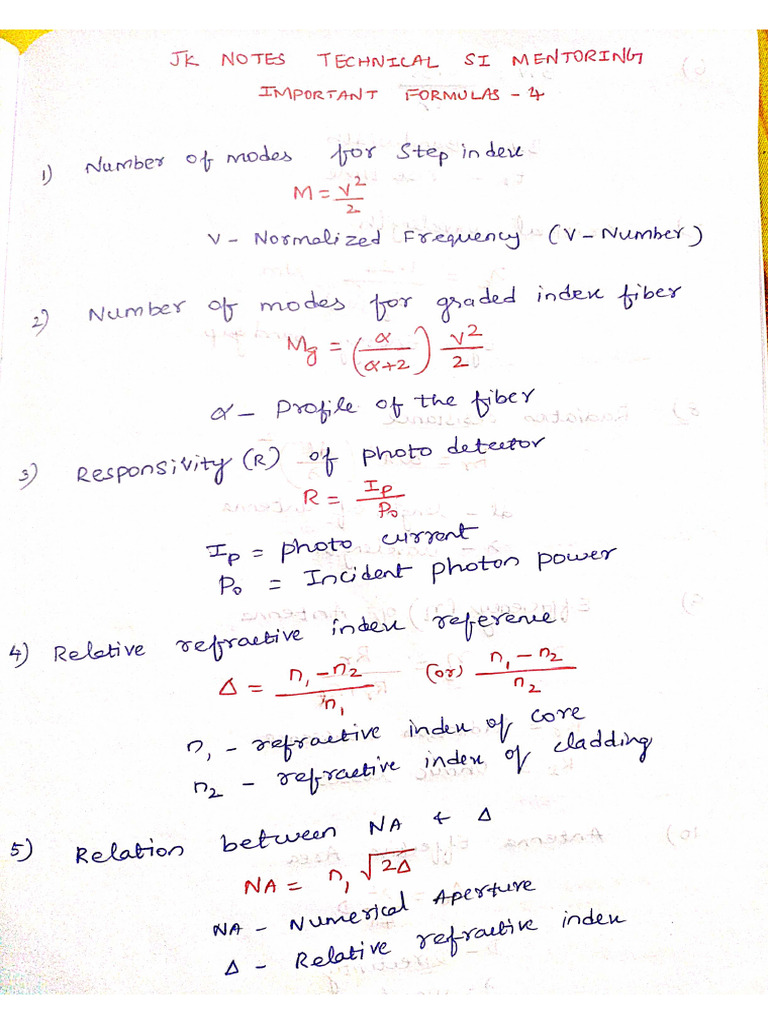 JK NOTES TECHNICAL SI MENTORING
IMPORTANT FORMULAS - 4
1) Number of modes for Step index
M = V²/2
V - Normalized Frequency (V - Number)
2) Number of modes for graded index fiber
Mg = (α/(α+2)) V²/2
α - Profile of the fiber
3) Responsivity (R) of photo detector
R = Ip/Po
Ip = photo current
Po = Incident photon power
4) Relative refractive index reference
Δ = (n₁-n₂)/n₁ (or) (n₁-n₂)/n₂
n₁ - refractive index of core
n₂ - refractive index of cladding
5) Relation between NA & Δ
NA = n₁√2Δ
NA - Numerical Aperture
Δ - Relative refractive index